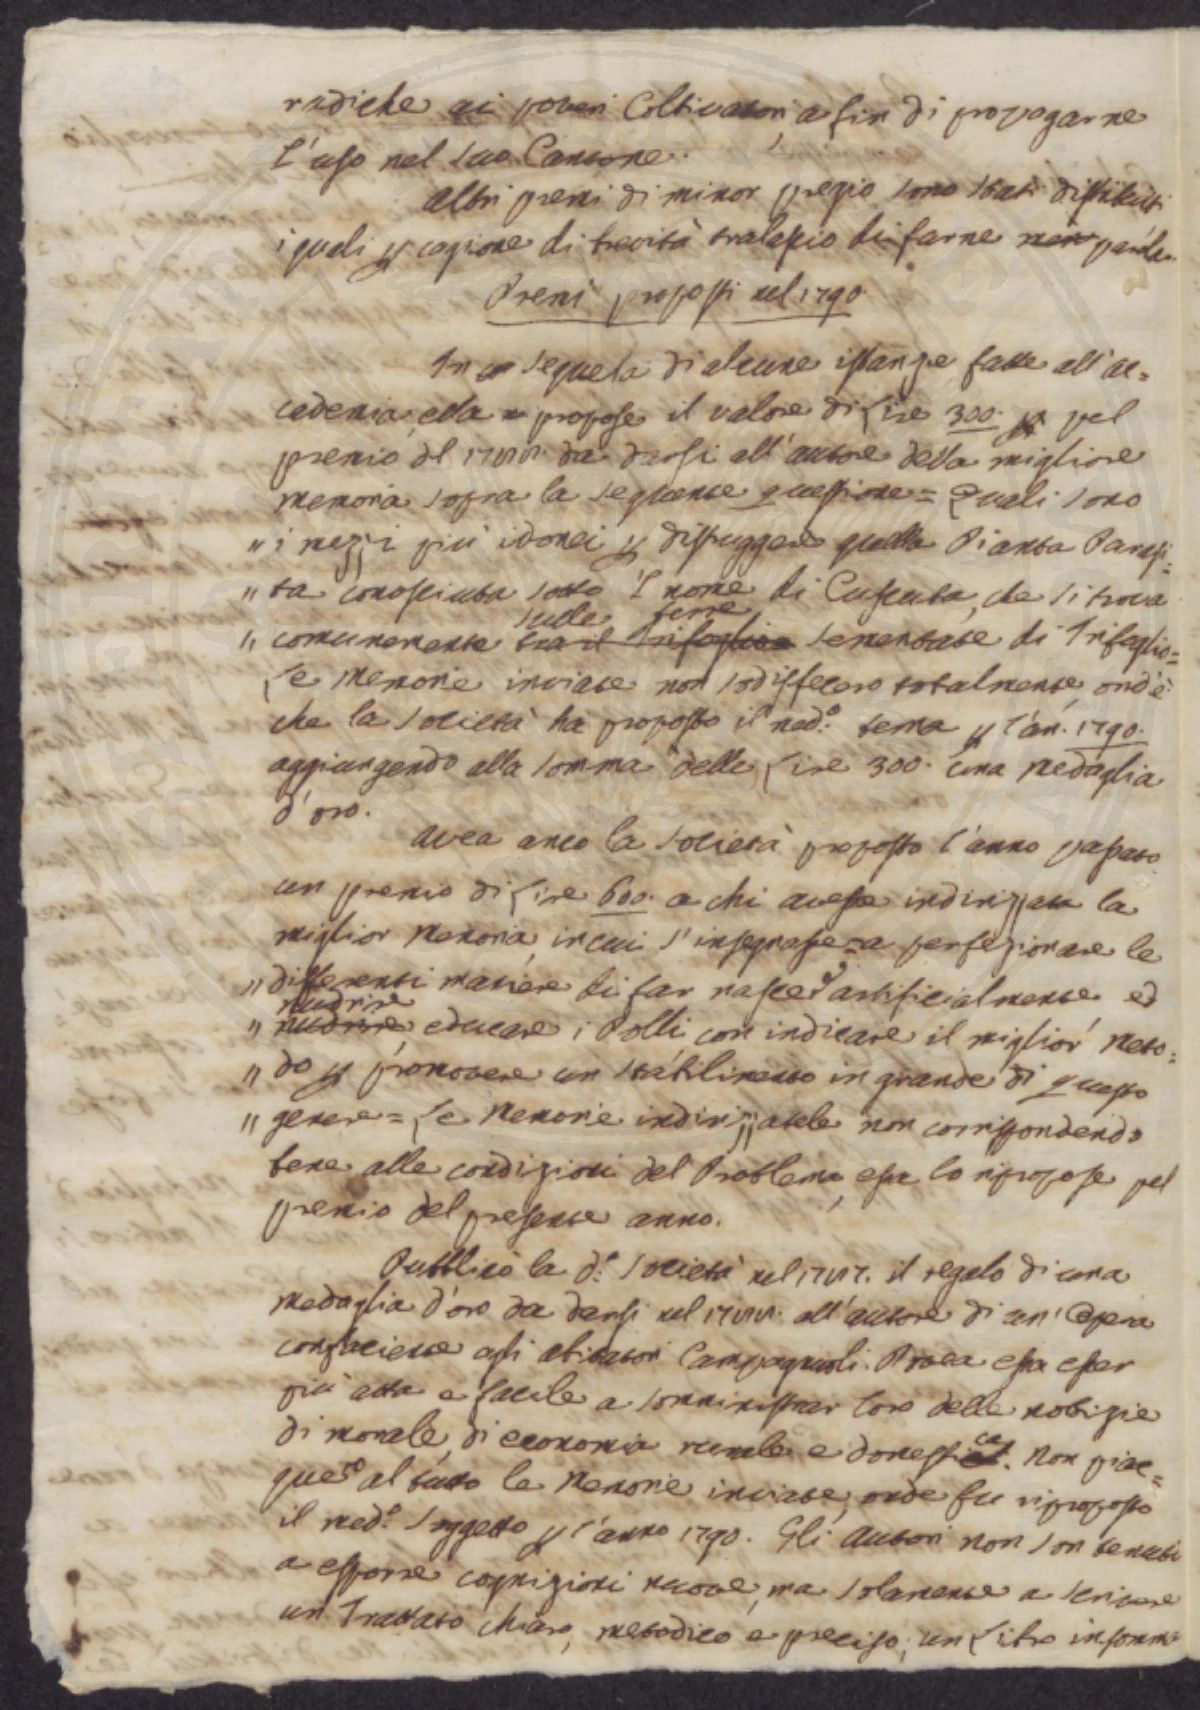 radiche ai poveri Coltivatori, a fin di propagarne
l'uso nel suo Cantone.
Altri premi di minor pregio sono stati distribuiti
i quali p cagione di brevità tralascio di farne parola.
Premi proposti nel 1790.
In sequela di alcune istanze fatte all'ac=
cademia, ella propose il valore di Lire 300. pel
premio del 1788. da darsi all'autore della migliore
memoria sopra la seguente questione = Quali sono
" i mezzi più idonei p distruggere quella Pianta Parasi=
" ta conosciuta sotto 'l nome di Cuscuta, che si trova
sulle terre
" comunemente tra il Trifoglio sementate di Trifoglio=
Le Memorie inviate non sodisfecero totalmente, ond'è
che la Società ha proposto il med.o tema p l'an. 1790.
aggiungendo alla somma delle Lire 300. una Medaglia
d'oro.
Avea anco la Società proposto l'anno passato
un premio di Lire 600. a chi avesse indirizzata la
miglior Memoria, in cui s'insegnasse = a perfezionare le
" differenti maniere di far nascere artificialmente, ed
nudrire
" nudrire, educare i Polli con indicare il miglior Meto=
" do p promovere un stabilimento in grande di questo
" genere = Le Memorie indirizzatele non corrispondendo
bene alle condizioni del Problema, essa lo ripropose pel
premio del presente anno.
Pubblicò la d.a Società nel 1787. il regalo di una
medaglia d'oro da darsi nel 1788. all'autore di un'Opera
confaciente agli abitatori Campagnuoli. Dovea essa esser
più atta e facile a somministrar loro delle notizie
di morale, di economia rurale e domestica. Non piac=
quero al tutto le Memorie inviate, onde fu riproposto
il med.o soggetto p l'anno 1790. Gli Autori non son tenuti
a esporre cognizioni nuove, ma solamente a scrivere
un Trattato chiaro, metodico e preciso; un Libro insomma